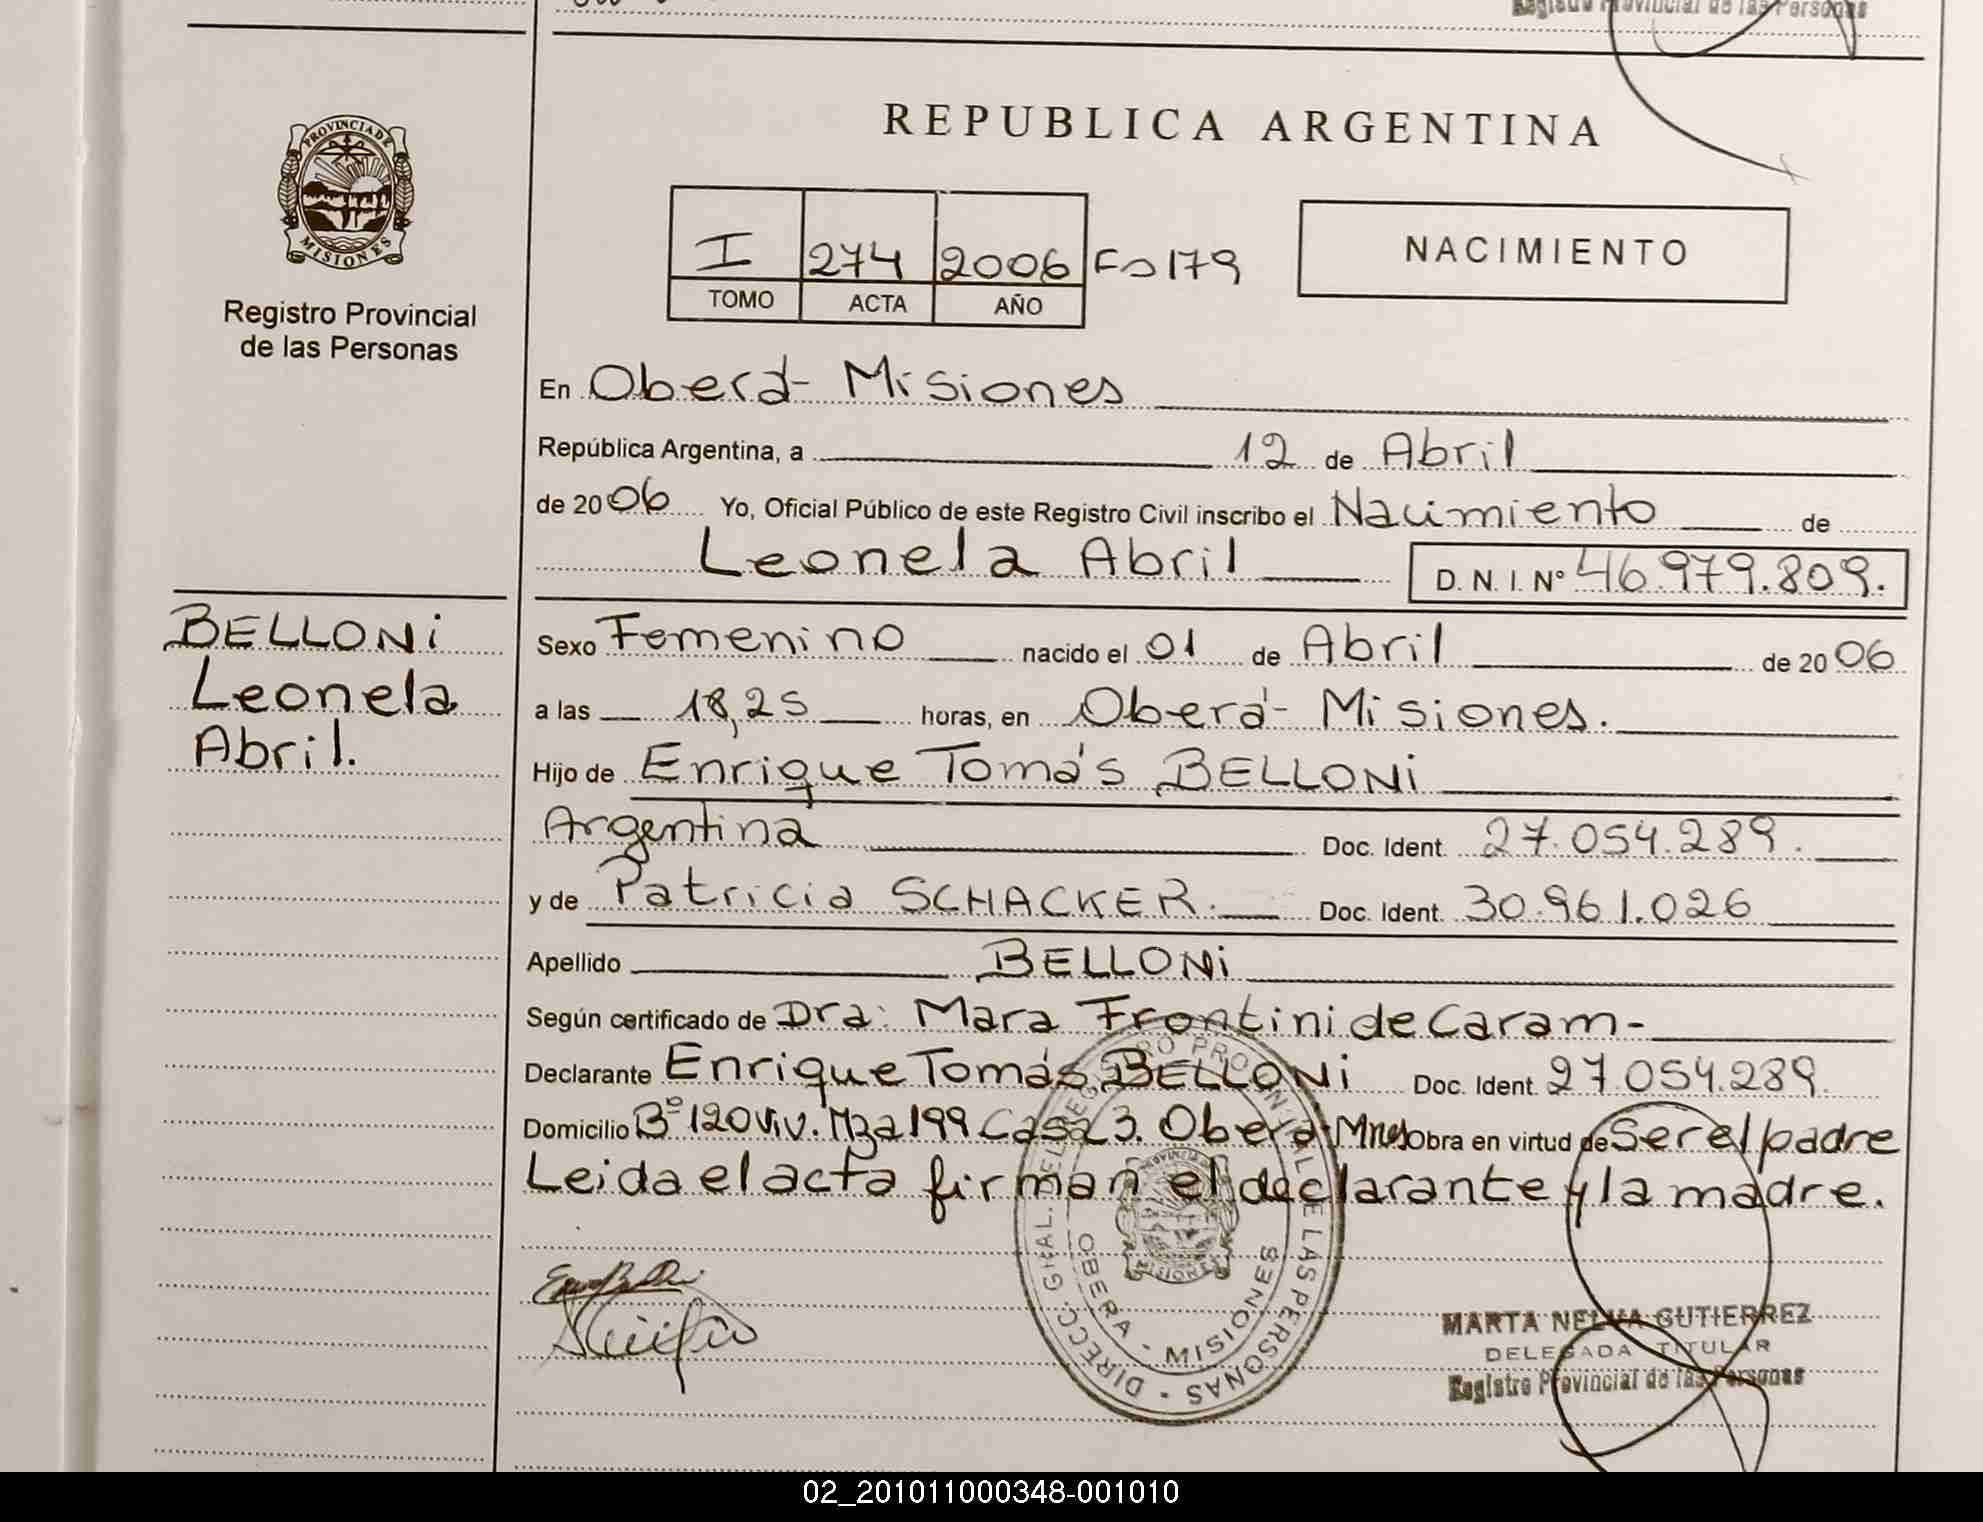 Registro Provincial de las Personas
REPUBLICA ARGENTINA
PROVINCIA DE
MISIONES
Registro Provincial
de las Personas
I 274 2006 Fo 179
TOMO ACTA AÑO
NACIMIENTO
En Oberá - Misiones
República Argentina, a 12 de Abril
de 2006 Yo, Oficial Público de este Registro Civil inscribo el Nacimiento de
Leonela Abril D. N. I. Nº 46.979.809.
BELLONi
Leonela
Abril.
Sexo Femenino nacido el 01 de Abril de 2006
a las 18,25 horas, en Oberá - Misiones.
Hijo de Enrique Tomás BELLONi
Argentina Doc. Ident. 27.054.289.
y de Patricia SCHACKER. Doc. Ident. 30.961.026
Apellido BELLONi
Según certificado de Dra: Mara Frontini de Caram -
Declarante Enrique Tomás BELLONi Doc. Ident. 27.054.289.
Domicilio Bº 120 Viv. Mza 199 Casa 3. Oberá - Mnes Obra en virtud de Ser el padre
Leida el acta firman el declarante y la madre.
DIRECC. GRAL. DEL REGISTRO PROVINCIAL DE LAS PERSONAS
OBERA - MISIONES
MISIONES
MARTA NELVA GUTIERREZ
DELEGADA TITULAR
Registro Provincial de las Personas
02_201011000348-001010